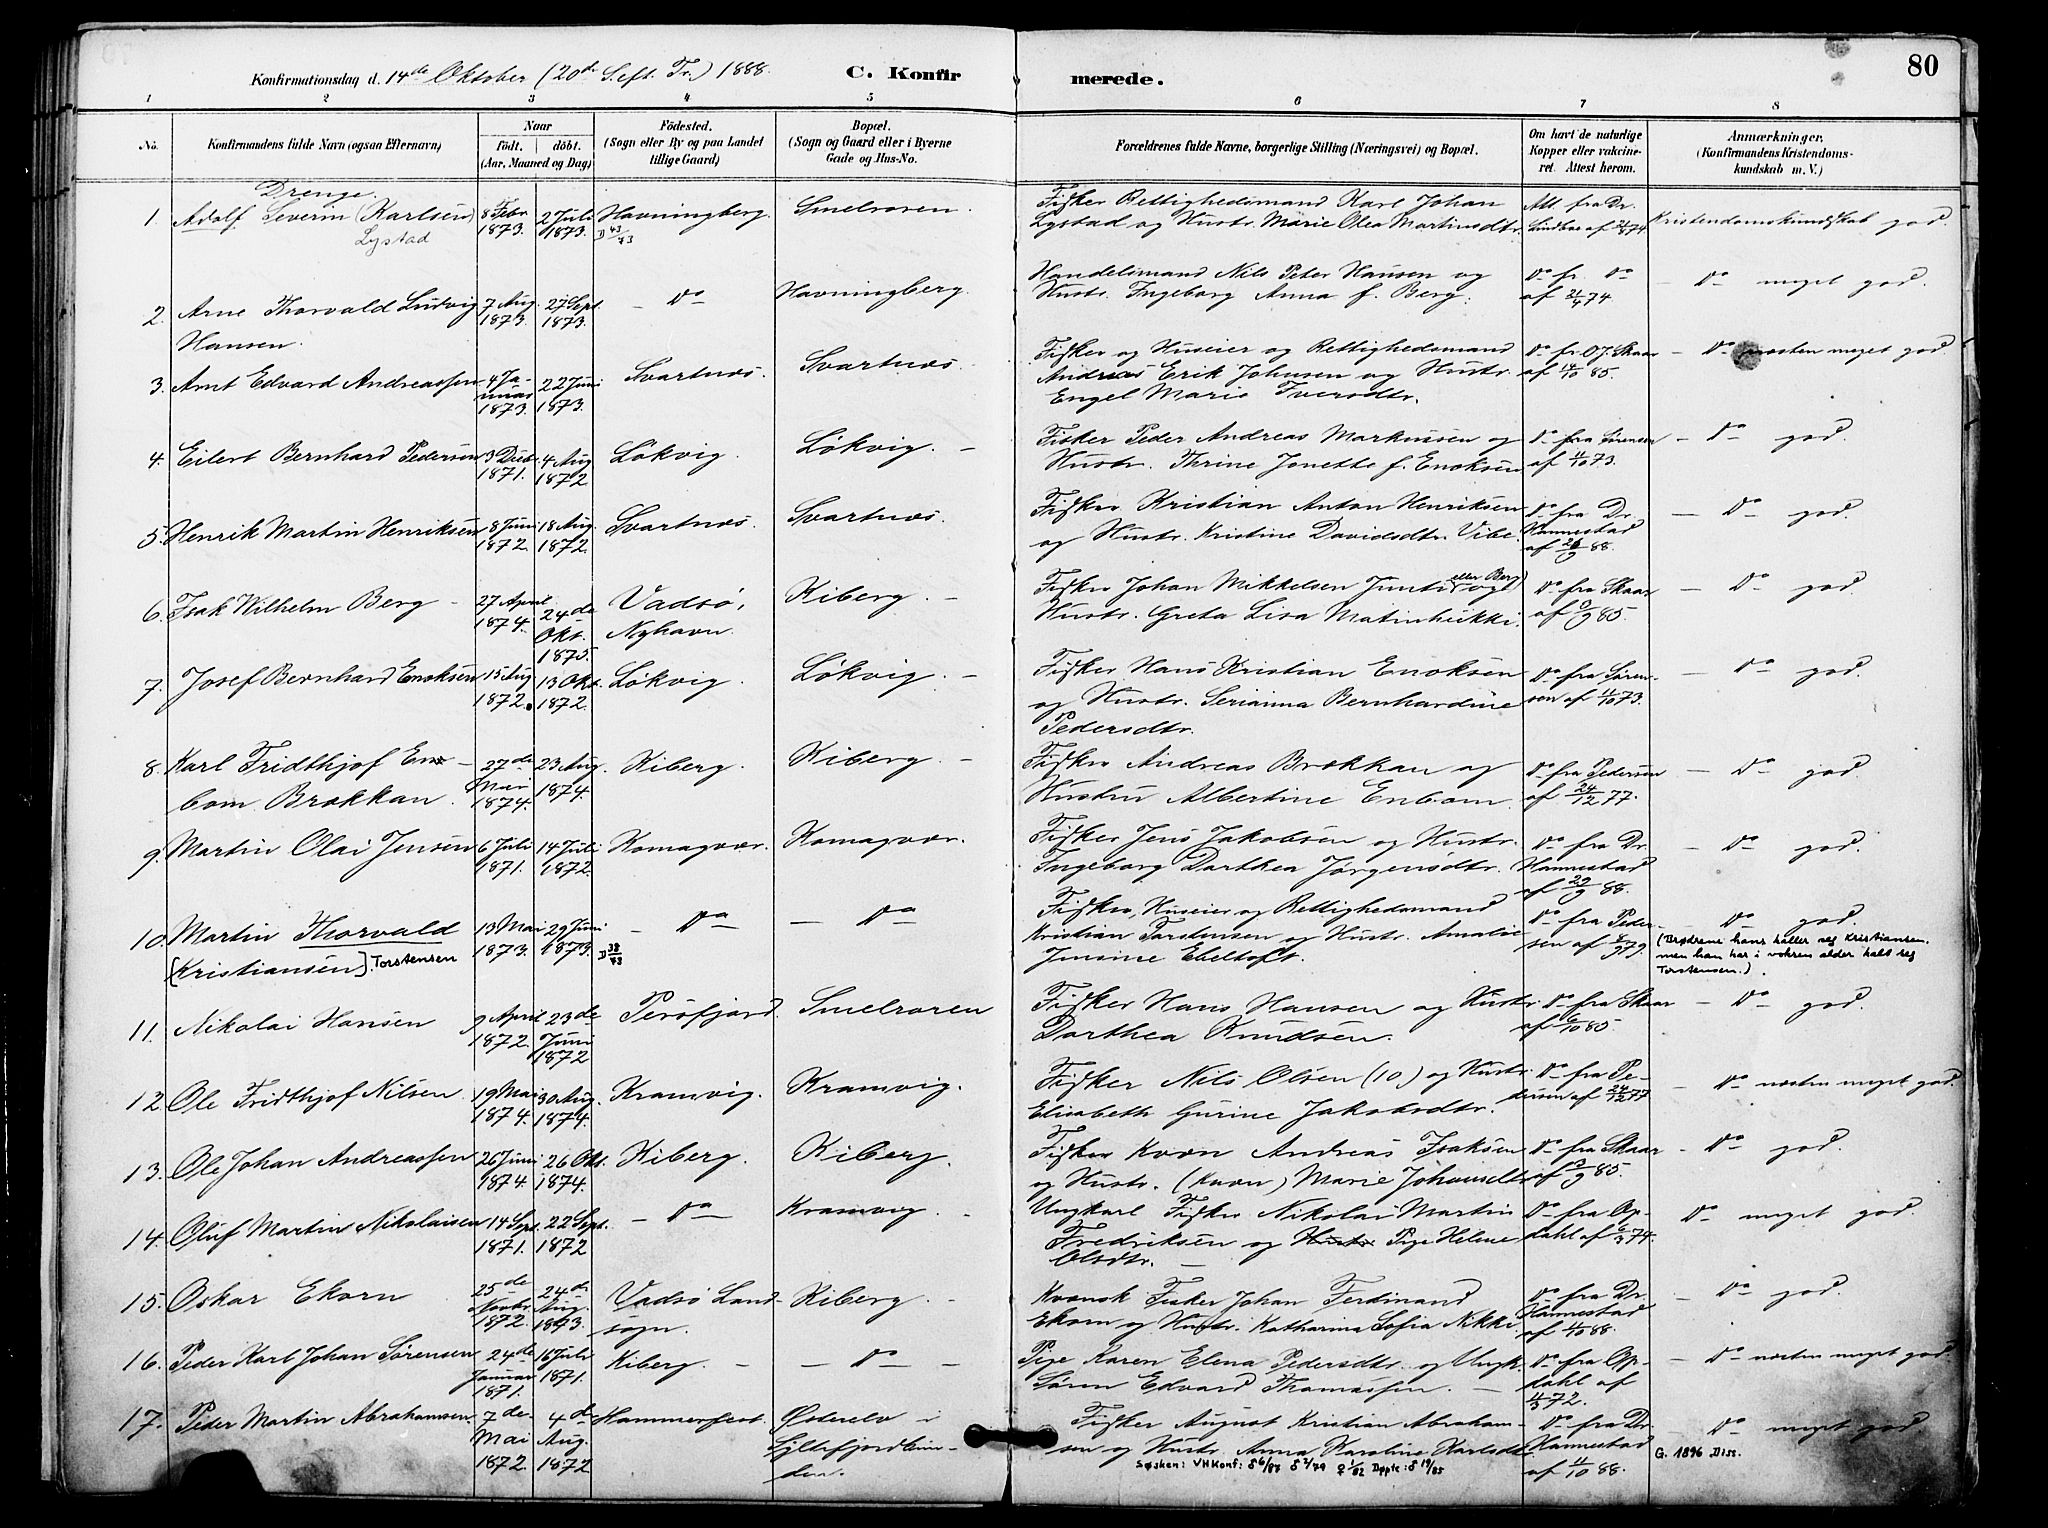 Konfirmationsdag d. 14de Oktober (20de S. eft. Tr.) 1888. C. Konfirmerede. 80
1 2 3 4 5 6 7 8
No.
Konfirmandens fulde Navn (ogsaa Efternavn)
Naar
födt. döbt.
(Aar, Maaned og Dag)
Födested.
(Sogn eller By og paa Landet
tillige Gaard)
Bopæl.
(Sogn og Gaard eller i Byerne
Gade og Hus-No.
Forældrenes fulde Navne, borgerlige Stilling (Næringsvei) og Bopæl.
Om havt de naturlige
Kopper eller vakcine-
ret. Attest herom.
Anmærkninger,
(Konfirmandens Kristendoms-
kundskab m. V.)
Drenge
1. Adolf Severin (Karlsen)
Lystad
8 Febr
1873.
2 Juli
1873.
Havningberg.
D 43/73
Smelroren.
Fisker Rettighedsmand Karl Johan
Lystad og Hustr. Marie Olea Martinsdtr.
Att. fra Dr.
Kristendomskundskab god.
2. Arne Thorvald Ludvig
Hansen.
7 Aug.
1873.
27 Sept.
1873.
- Do
Havningberg.
Handelsmand Nils Peter Hansen og
Hustr. Ingeborg Anna f. Berg.
Do fr. Do
- Do meget god.
3. Arnt Edvard Andreassen
4 Ja-
nuar
1873.
22 Juni
1873.
Svartnæs.
Svartnæs.
Fisker og Huseier og Rettighedsmand
Andreas Erik Johnsen og Hustr.
Engel Marie Iversdtr.
Do fr. O.J. Skaar
af 14/10 85.
- Do næsten meget god
4. Eilert Bernhard Pedersen
3 Dec
1871.
4 Aug
1872
Løkvig.
Løkvig. -
Fisker Peder Andreas Markussen og
Hustr. Thrine Jonette f. Enoksen
Do fra Sørensen
af 11/10 73.
- Do god.
5. Henrik Martin Henriksen
8 Juni
1872.
18 Aug.
1872.
Svartnæs.
Svartnæs.
Fisker Kristian Anton Henriksen
og Hustr. Kristine Davidsdtr. Vibe.
Do fra Dr.
Hannestad
- Do god.
6. Isak Wilhelm Berg -
27 April
1874.
24de
Okt.
1875.
Vadsö,
Nyhavn.
Kiberg. -
Fisker Johan Mikkelsen Junti (eller Berg) og
Hustr. Greta Lisa Matinhukki.
Do fra Skaar
- Do god.
7. Josef Bernhard Enoksen
15 Aug
1872.
13 Okt.
1872.
Løkvig.
Løkvig. -
Fisker Hans Kristian Enoksen
og Hustr. Serianna Bernhardine
Pedersdtr.
Do fra Sören-
sen af 11/10 73.
- Do god.
8. Karl Fridthjof En-
bom Brækkan.
27de
Mai
1874.
23 Aug.
1874.
Kiberg.
Kiberg. -
Fisker Andreas Brækkan og
Hustru Albertine Enbom.
Do fra Pedersen
af 24/12 77.
- Do god
9. Martin Olai Jensen
6 Juli
1871.
14 Juli
1872.
Komagvær.
Komagvær.
Fisker Jens Jakobsen og Hustr.
Ingeborg Dorthea Jørgensdtr.
Do fra Dr.
Hannestad
af 29/9 88.
- Do god.
10. Martin Thorvald
[Kristiansen]. Torstensen
13 Mai
1873.
29 Juni
1873.
- Do
D 38/73
- Do
Fisker, Huseier og Rettighedsmand
Kristian Torstensen og Hustr. Amalie
Jensine Ebeltoft.
Do fra Peder-
- Do god.
(Brødrene hans kaller seg Kristiansen.
men han har i voksen alder kalt seg
Torstensen.)
11. Nikolai Hansen
9 April
1872.
23de
Juni
1872
Persfjord.
Smelroren
Fisker Hans Hansen og Hustr
Dorthea Knudsen.
Do fra Skaar
af 6/10 85.
- Do god.
12. Ole Fridthjof Nilsen.
19 Mai
1874.
30 Aug.
1874.
Kramvig.
Kramvig.
Fisker Nils Olsen (10.) og Hustr.
Elisabeth Gurine Jakobsdtr.
Do fra Pe-
dersen af 24/12 77
- Do næsten meget god.
13. Ole Johan Andreassen
26 Juni
1874.
26 Okt.
1874.
Kiberg.
Kiberg.
Fisker Kvæn Andreas Isaksen
og Hustr. (Kvæn) Marie Johansdtr
Do fra Skaar
- Do god.
14. Oluf Martin Nikolaisen
14 Sept.
1871.
22 Sept.
1872
- Do
Kramvig. -
Ungkarl Fisker Nikolai Martin
Fredriksen og Hustr Pige Helene
Olsdtr. -
Do fra Op-
Do meget god.
15. Oskar Ekorn
25de
Novbr.
1872.
24de
Aug.
1873.
Vadsö Land-
sogn.
Kiberg. -
Kvænsk Fisker Johan Ferdinand
Ekorn og Hustr. Katharina Sofia Nikki
Do fra Dr.
Hannestad
af 4/10 88.
- Do god.
16. Peder Karl Johan Sørensen
24de
Januar
1871.
16 Juli
1871.
Kiberg. -
- Do -
Pige Karen Elena Pedersdtr. og Ungk.
Søren Edvard Thomassen. -
Do fra Op-
dahl af
- Do næsten meget god.
17. Peder Martin Abrahamsen
7de
Mai
1872.
4de
Aug.
1872
Hammerfest.
Østerelv i
Syltefjordbun-
den.
Fisker August Kristian Abraham-
sen og Hustr. Anna Karoline Karlsdtr.
Søsken: VHKonf: 8 6/88 8 2/79 ♀ 1/82 Døpte: 8 19/85
Do fra Dr.
Hannestad
af 11/10 88.
- Do meget god
G. 1896 Diss.